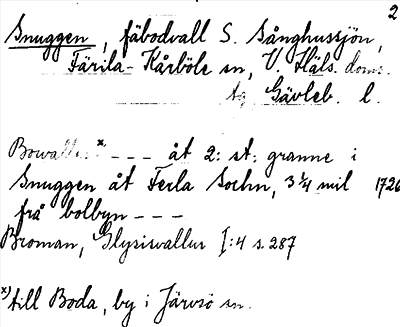 2
Snuggen, fäbodvall S. Sånghussjön,
Färila-Kårböle sn, V. Häls. doms.
tg Gävleb. l.
Bowall x - - - åt 2: st: granne i
Snuggen åt Ferla Sochn, 3 1/4 mil 1726
frå bolbyn - - -
Broman, Glysisvallur I:4 s. 287
x) till Boda, by i Järvsö sn.